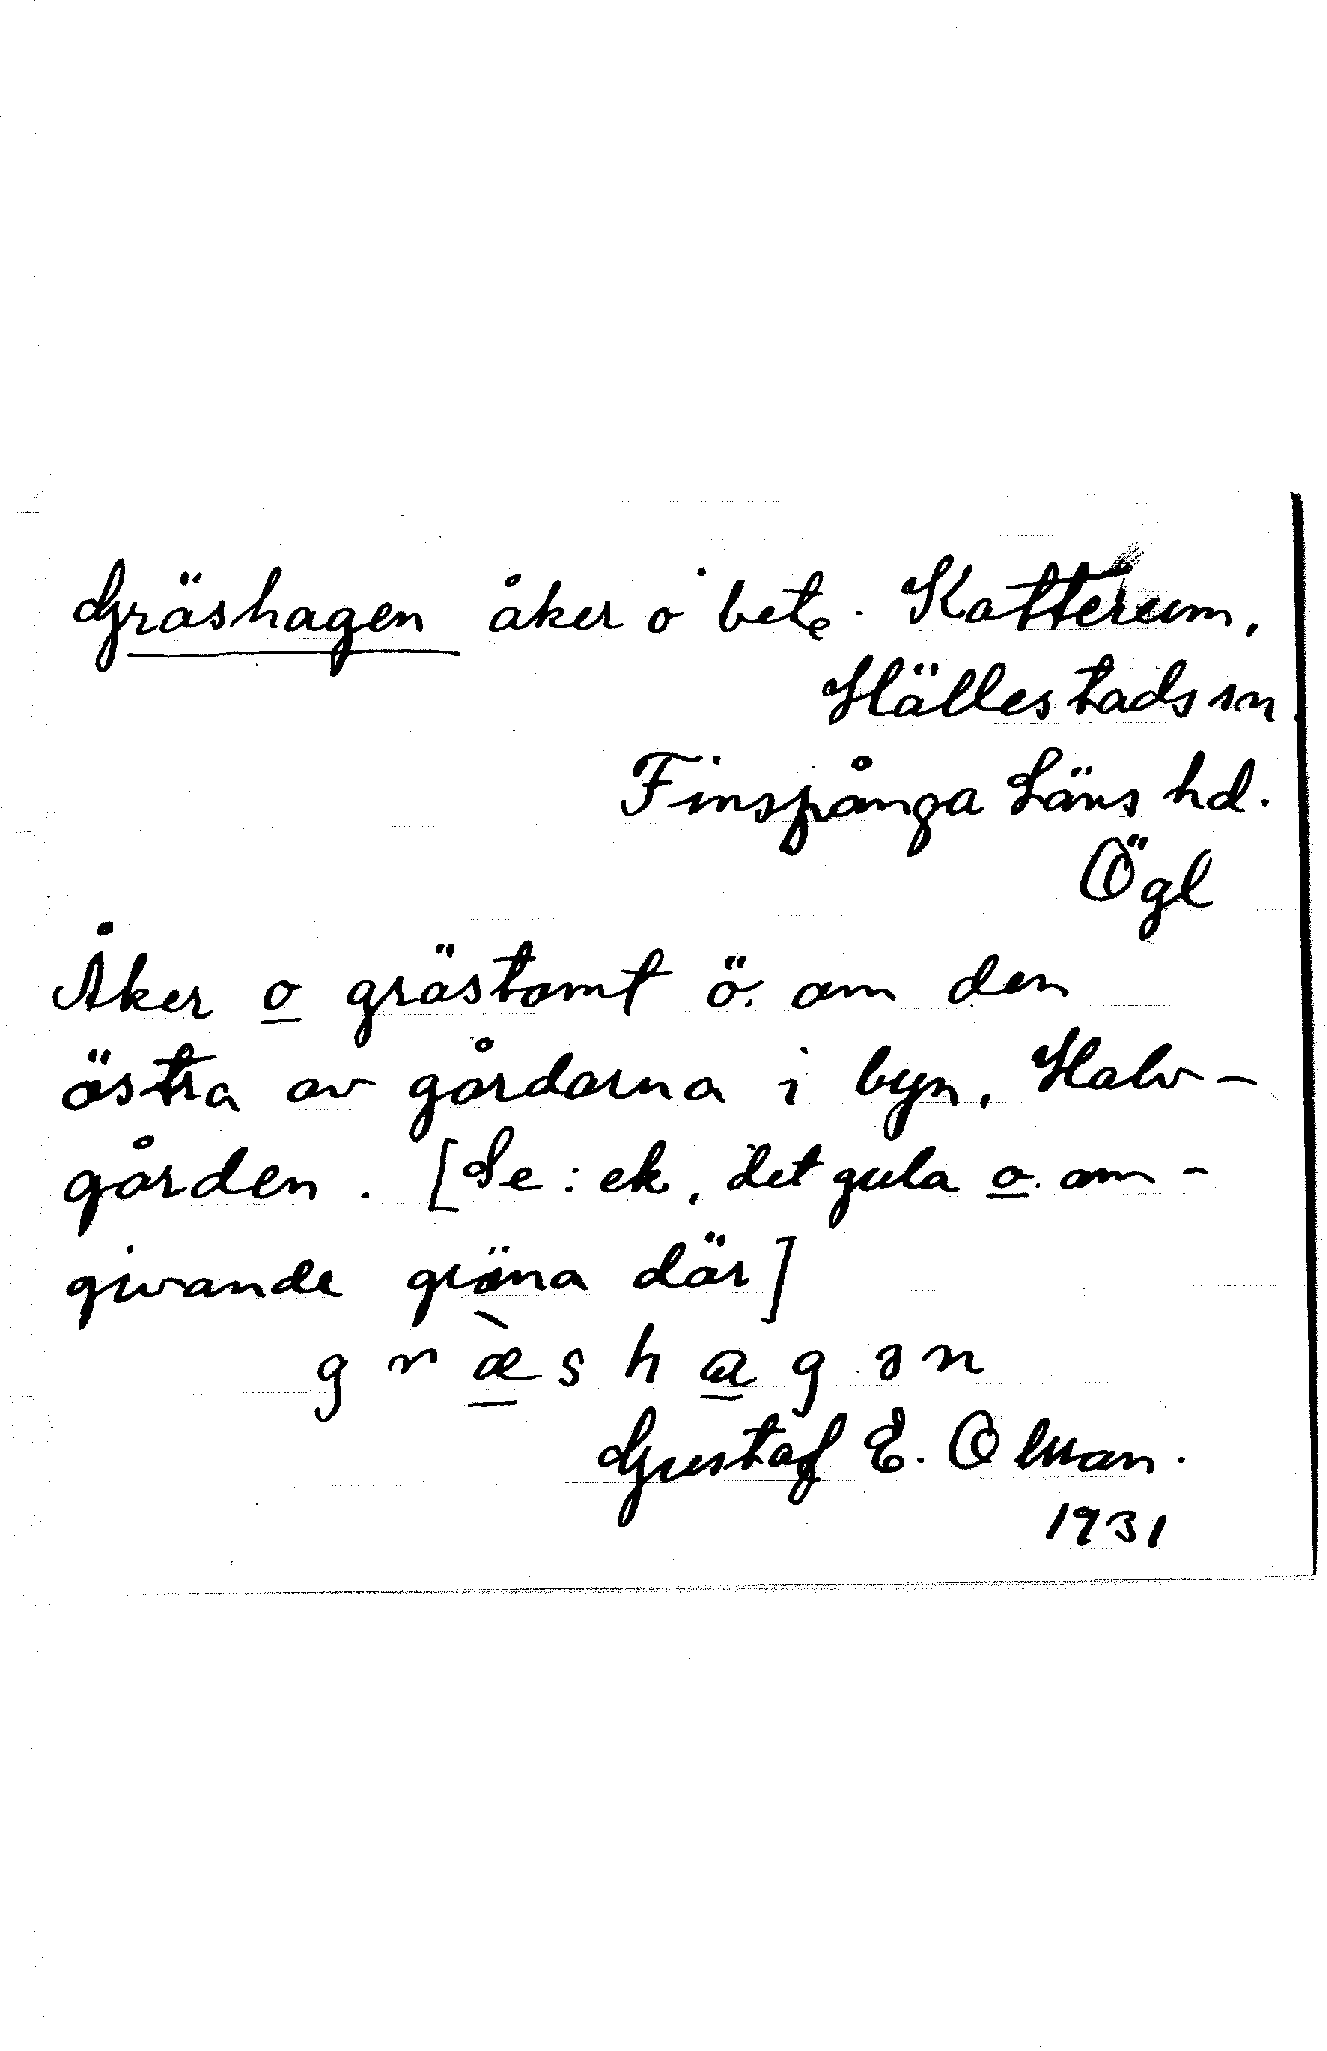 Gräshagen åker o bete. Katterum,
Hällestads sn.
Finspånga Läns hd.
Ögl
Åker o grästomt ö. om den
östra av gårdarna i byn, Halv-
gården. [Se: ek, det gula o. om-
givande gröna där]
g r æ̀ s h a g ə n
Gustaf E. Olman.
1931